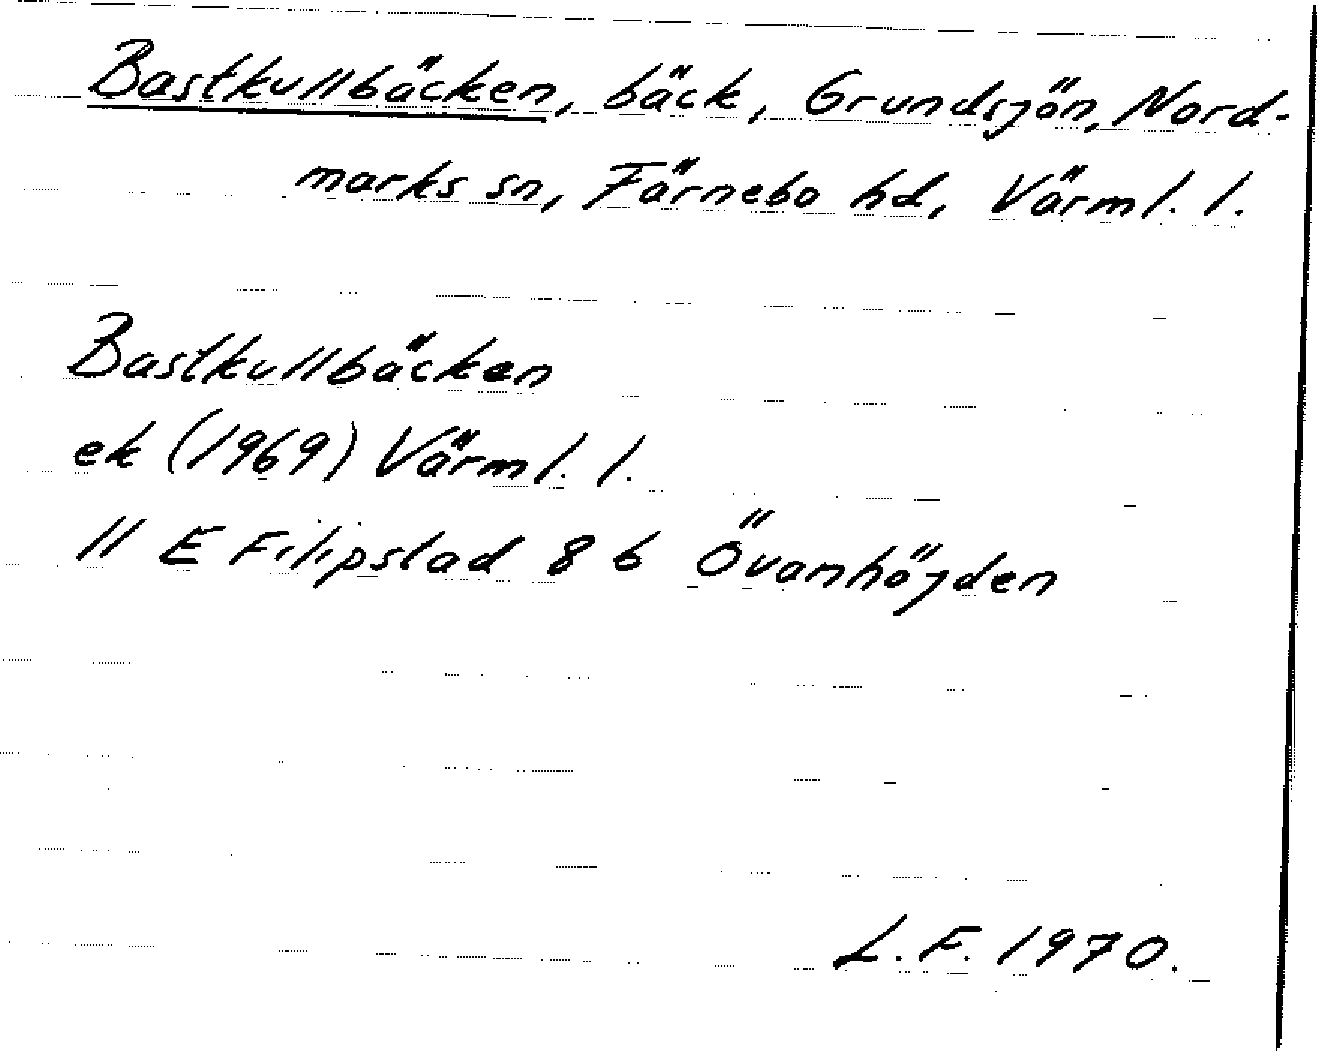 Bastkullbäcken, bäck, Grundsjön, Nord-
marks sn, Färnebo hd, Värml. l.
Bastkullbäcken
ek (1969) Värml. l.
11 E Filipstad 8 b Övanhöjden
L.F. 1970.